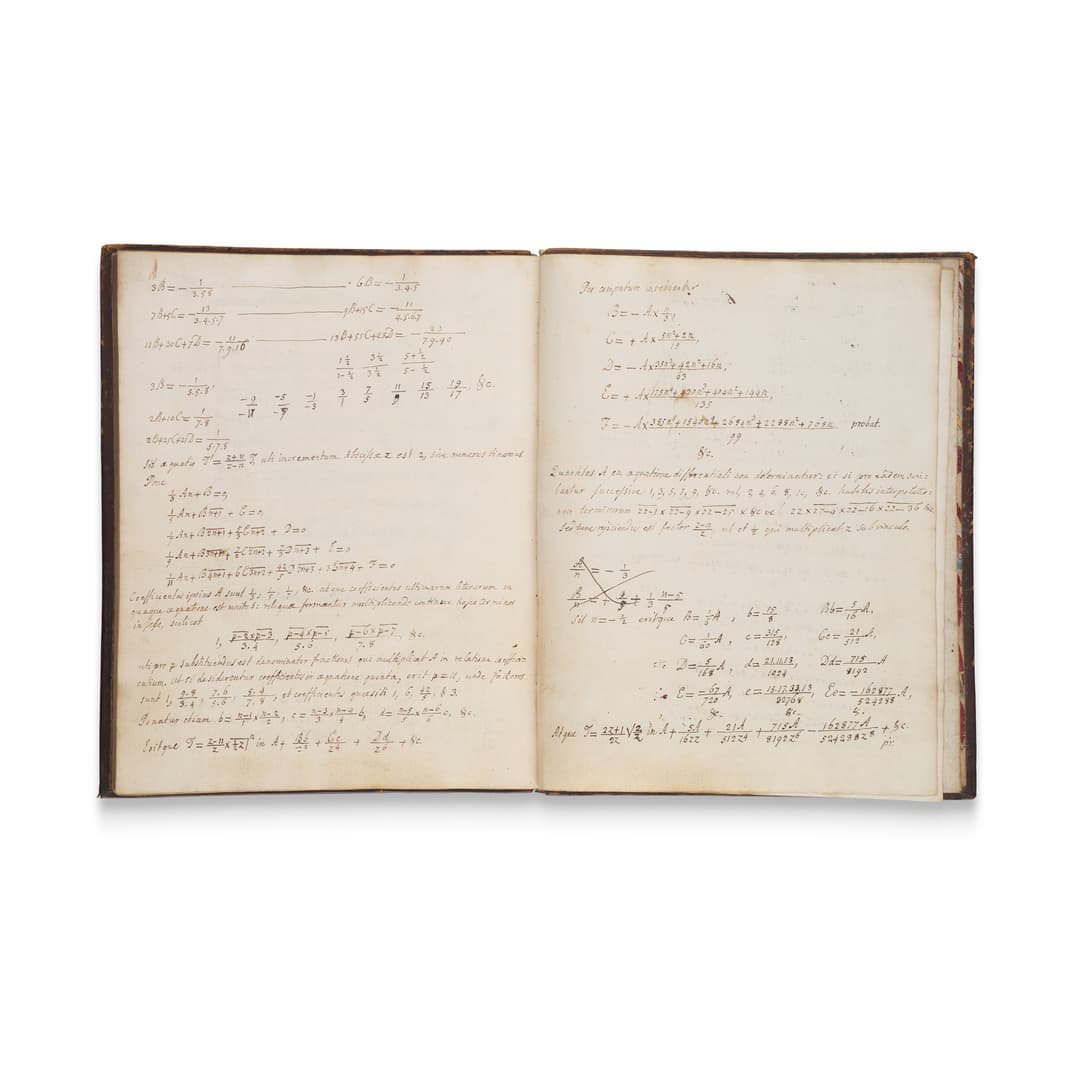 3B = - 1/3.5.8 ——— - 6B = 1/3.4.5
7B+5C = - 13/3.4.5.7 ——— 9B+5C = - 11/4.5.6.7
11B+30C+7D = - 11/7.9.10 ——— 13B+55C+28D = - 23/7.9.40
1½/1-½ 3½/3-½ 5+½/5-½
3B = - 1/3.5.8,
-9/-11 -5/-7 -1/-3 3/1 7/5 11/9 15/13 19/17 &c.
2B+10C = 1/7.8
2B+25C+21D = 1/5.7.8
Sit æquatio T' = z+n/z-n T, uti incrementum Abscissæ z est 2, sive numerus binarius
Pone
⅓An + B = 0,
⅕An + Bn+1 + C = 0,
1/7An + B2n+1 + Cn+2 + D = 0
1/9An + B3n+1 + C2n+2 + Dn+3 + E = 0
1/11An + B4n+1 + 6C3n+2 + 42/5 D2n+3 + 3En+4 + F = 0
Coefficientes ipsius A sunt ⅓, ⅕, 1/7, &c atque coefficientes ultimarum literarum in
quaque æquatione est unitas: reliquæ formantur multiplicando continue hosce terminos
in sese, scilicet
1, p-2×p-3/3.4, p-4×p-5/5.6, p-6×p-7/7.8, &c.
uti pro p substituendus est denominator fractionis quæ multiplicat A in relatione coefficien-
tium. ut si desiderentur coefficientes in æquatione quinta, erit p = 11, unde factores
sunt 1, 9.8/3.4, 7.6/5.6, 5.4/7.8, et coefficientes quæsiti 1, 6, 42/5, & 3.
Ponatur etiam b = n-1/1 × n-2/2, c = n-3/3 × n-4/4 b, d = n-5/5 × n-6/6 c, &c.
Eritque T = z-n/z × ½z|ⁿ in A + Bb/z² + Cc/z⁴ + Dd/z⁶ + &c
Per computum invenientur
B = - A × n/3,
C = + A × 5n²+2n/15,
D = - A × 35n³+42n²+16n/63,
E = + A × 175n⁴+420n³+404n²+144n/135,
F = - A × 385n⁵+1540n⁴+2684n³+2288n²+768n/99 probat.
&c.
Quantitas A ex æquatione differentiali non determinatur: et si pro z
successive 1, 3, 5, 7, 9, &c. vel, 2, 4, 6, 8, 10, &c. habebis
terminorum zz-1 × zz-9 × zz-25 × &c vel zz × zz-4 × zz-16 × zz-36 &c
Sed tunc rejiciendus est factor z-n/z ut et ½ qui multiplicat z sub vinculo.
A/n = - 1/3
Sit n = - ½ eritque B = ⅙A, b = 15/8 Bb = 5/16 A,
C = 1/60 A, c = 315/128, Cc = 21/512 A,
D = 5/168 A, d = 21.11.13/1024 Dd = 715/8192 A
E = -67/720 A, e = 11.17.33.13/32768 Ee = -162877/524288 A,
&c. &c. &c.
Atque T = 2z+1/2z √2/z in A + 5A/16z² + 21A/512z⁴ + 715A/8192z⁶ - 162877A/524288z⁸ + &c.